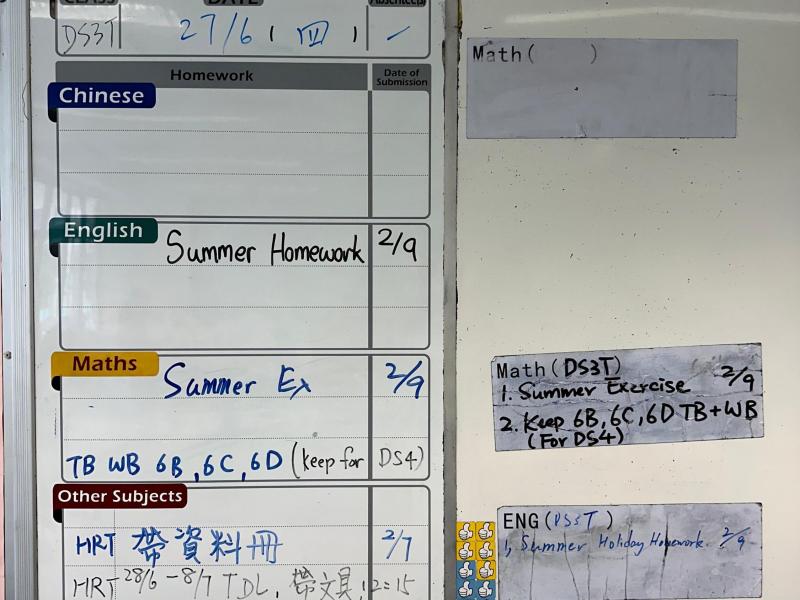 CLASS DATE Absentee(s)
DS3T 27/6 ( 四 )
Homework Date of Submission
Chinese
English
Summer Homework 2/9
Maths
Summer Ex 2/9
TB WB 6B, 6C, 6D (keep for DS4)
Other Subjects
HRT 帶資料冊 2/7
HRT 28/6 - 8/7 TDL, 帶文具, 12=15
Math( )
Math(DS3T)
1. Summer Exercise 2/9
2. Keep 6B, 6C, 6D TB+WB
(For DS4)
ENG(DS3T)
1, Summer Holiday Homework. 2/9